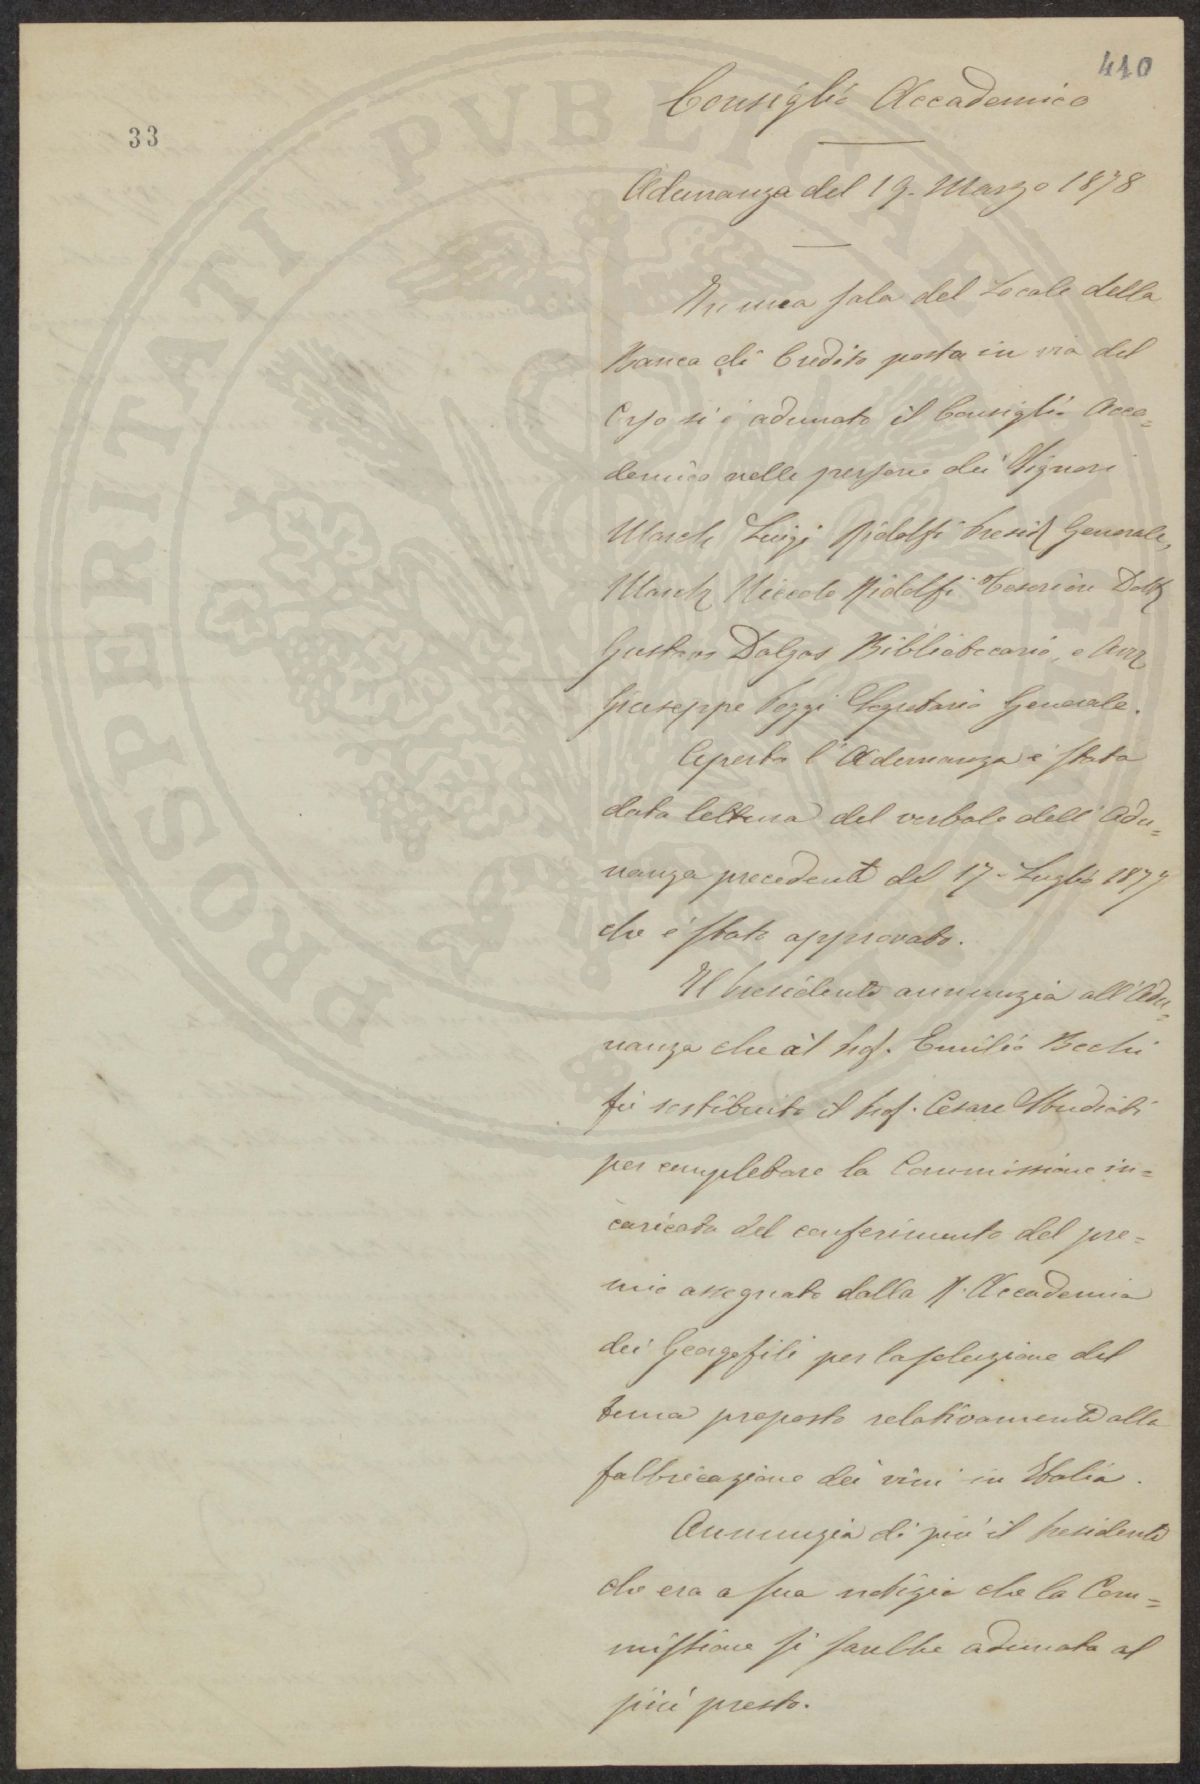 440
33
Consiglio Accademico
Adunanza del 19. Marzo 1878
In una sala del Locale della
Banca di Credito posta in via del
Corso si è adunato il Consiglio Acca=
demico nelle persone dei Signori
March Luigi Ridolfi Presid Generale,
March Niccolo Ridolfi Tesoriere Dott
Gustavo Dalgas Bibliotecario, e
Giuseppe Pozzi Segretario Generale.
Aperta l'Adunanza è stata
data lettura del verbale dell'Adu=
nanza precedente del 17. Luglio 1877
che è stato approvato.
Il Presidente annunzia all'Adu=
nanza che al Prof. Emilio Bechi
fù sostituito il Prof. Cesare Studiati
per completare la Commissione in=
caricata del conferimento del pre=
mio assegnato dalla R. Accademia
dei Georgofili per la soluzione del
tema proposto relativamente alla
fabbricazione dei vini in Italia.
Annunzia di più il Presidente
che era a sua notizia che la Com=
missione si sarebbe adunata al
più presto.
PROSPERITATI PVBLICAE